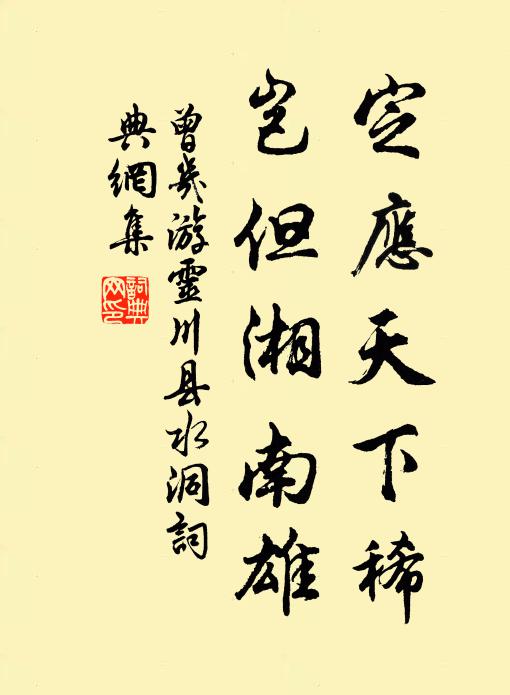 定應天下稀
豈但湘南雄
曾幾游靈川县水洞詞
典網集
詞典
网印